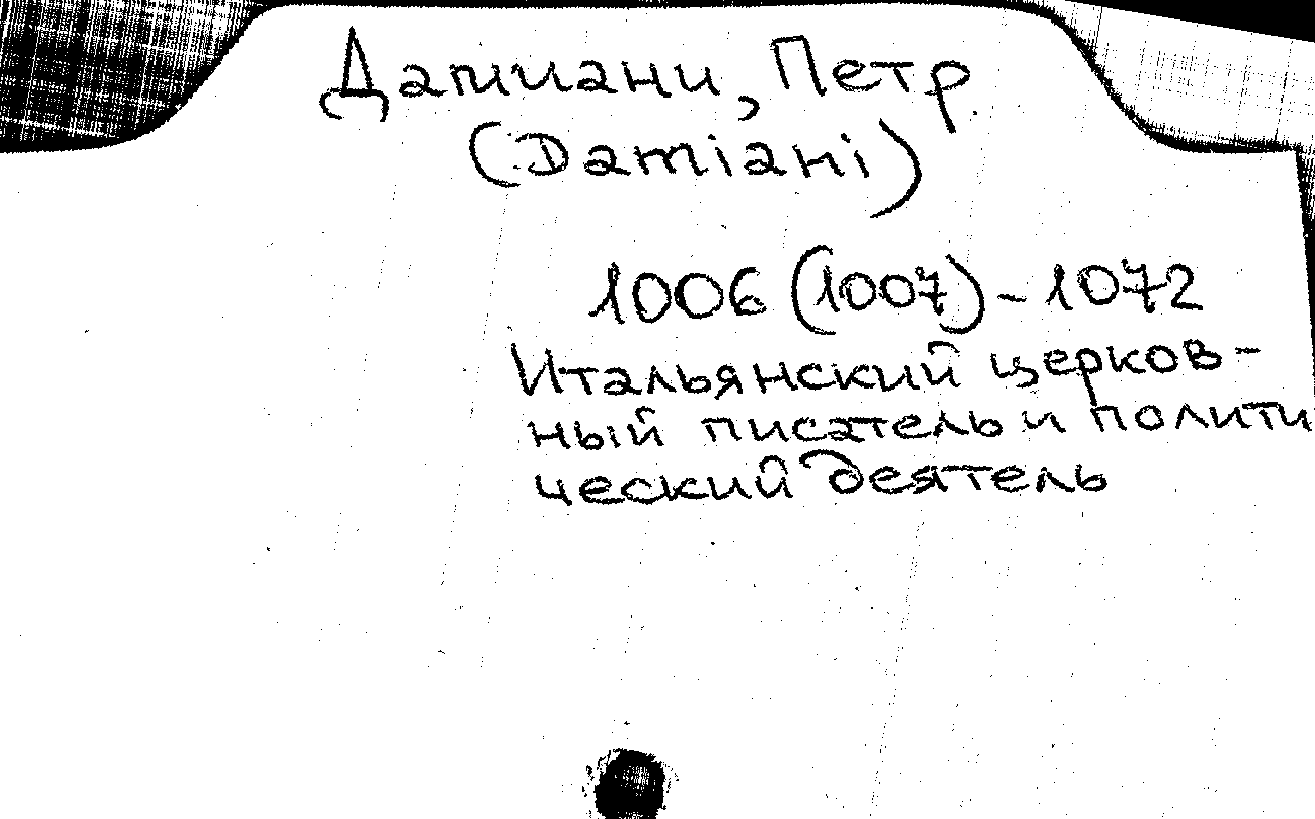 Дамиани, Петр
(Damiani)
1006 (1007) - 1072
Итальянский церков-
ный писатель и полити
ческий деятель